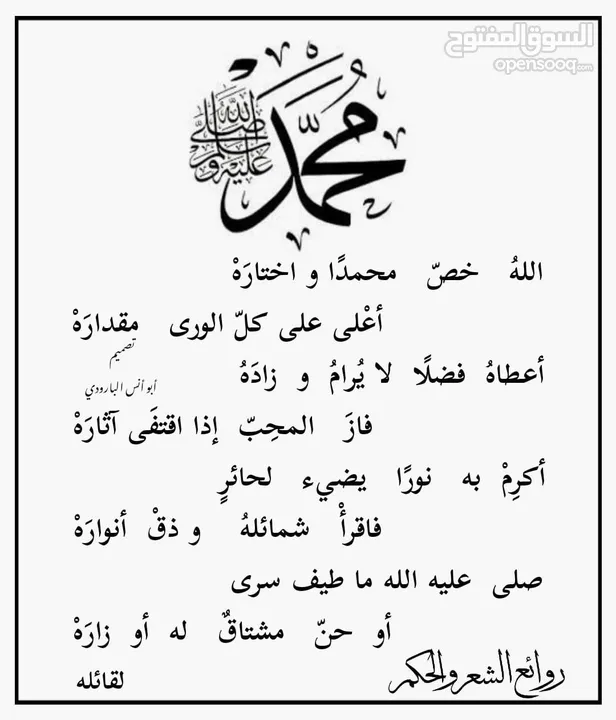 السوق المفتوح
opensooq.com
محمد
صلى الله عليه وسلم
اللهُ خصّ محمدًا و اختارَهْ
أعْلى على كلّ الورى مقدارَهْ
تصميم
أعطاهُ فضلًا لا يُرامُ و زادَهُ
أبو أنس البارودي
فازَ المحِبّ إذا اقتفَى آثارَهْ
أكرِمْ به نورًا يضيء لحائرٍ
فاقرأْ شمائلهُ و ذقْ أنوارَهْ
صلى عليه الله ما طيف سرى
أو حنّ مشتاقٌ له أو زارَهْ
روائع الشعر والحكم
لقائله